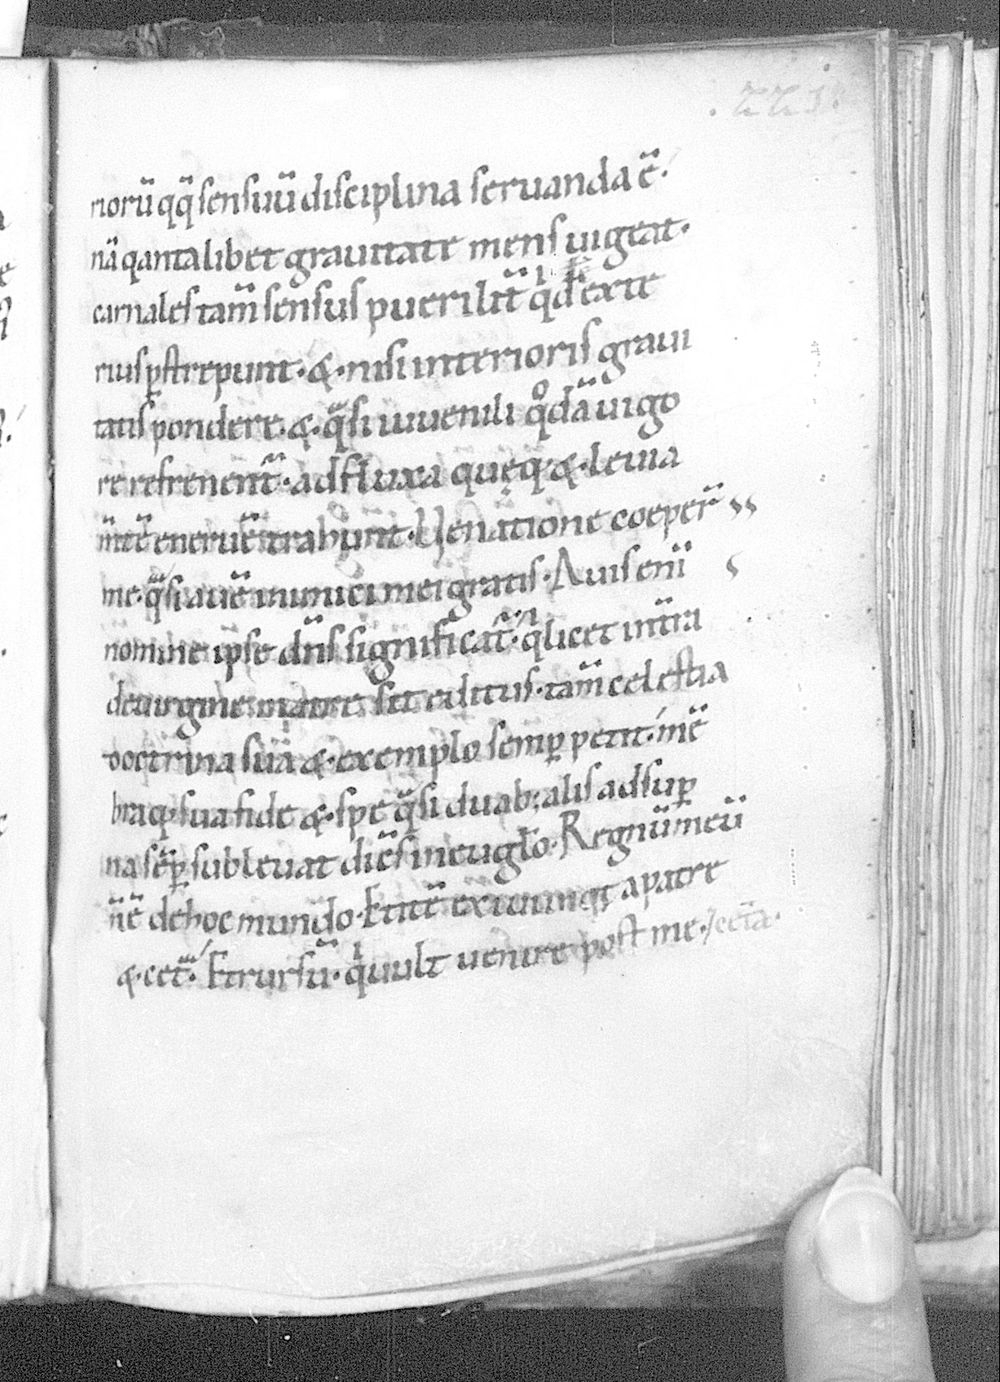 .221.
riorū qq̄ sensuū disciplina seruanda ē.
nā qantalibet grauitate mens uigeat.
carnales tam̄ sensus pueriliт̄ q̇dē exte
rius ꝑstrepunt. &. nisi interioris graui
tatis pondere. &. q̄si iuuenili qͦdā uigo
re refrenent̄. ad fluxa quęq; &. leuia
m̄tē eneruē trahunt. Uenatione coeper̄
me. q̄si auē inimici mei gratis. Auis eni̅
nomine ipse dn̄s significat̄. qͥ licet intra
de uirgine matre sit editus. tam̄ celestia
doctrina sua &. exemplo semꝑ petit. mē
braq; sua fide &. spe q̄si duab; alis ad suꝑ
na sēꝑ subleuat dicēs in euglo. Regnū meū
n̄ ē de hoc mundo. Et itē exiui a patre
&. cet̄. Et rursū. qͥ uult uenire post me.